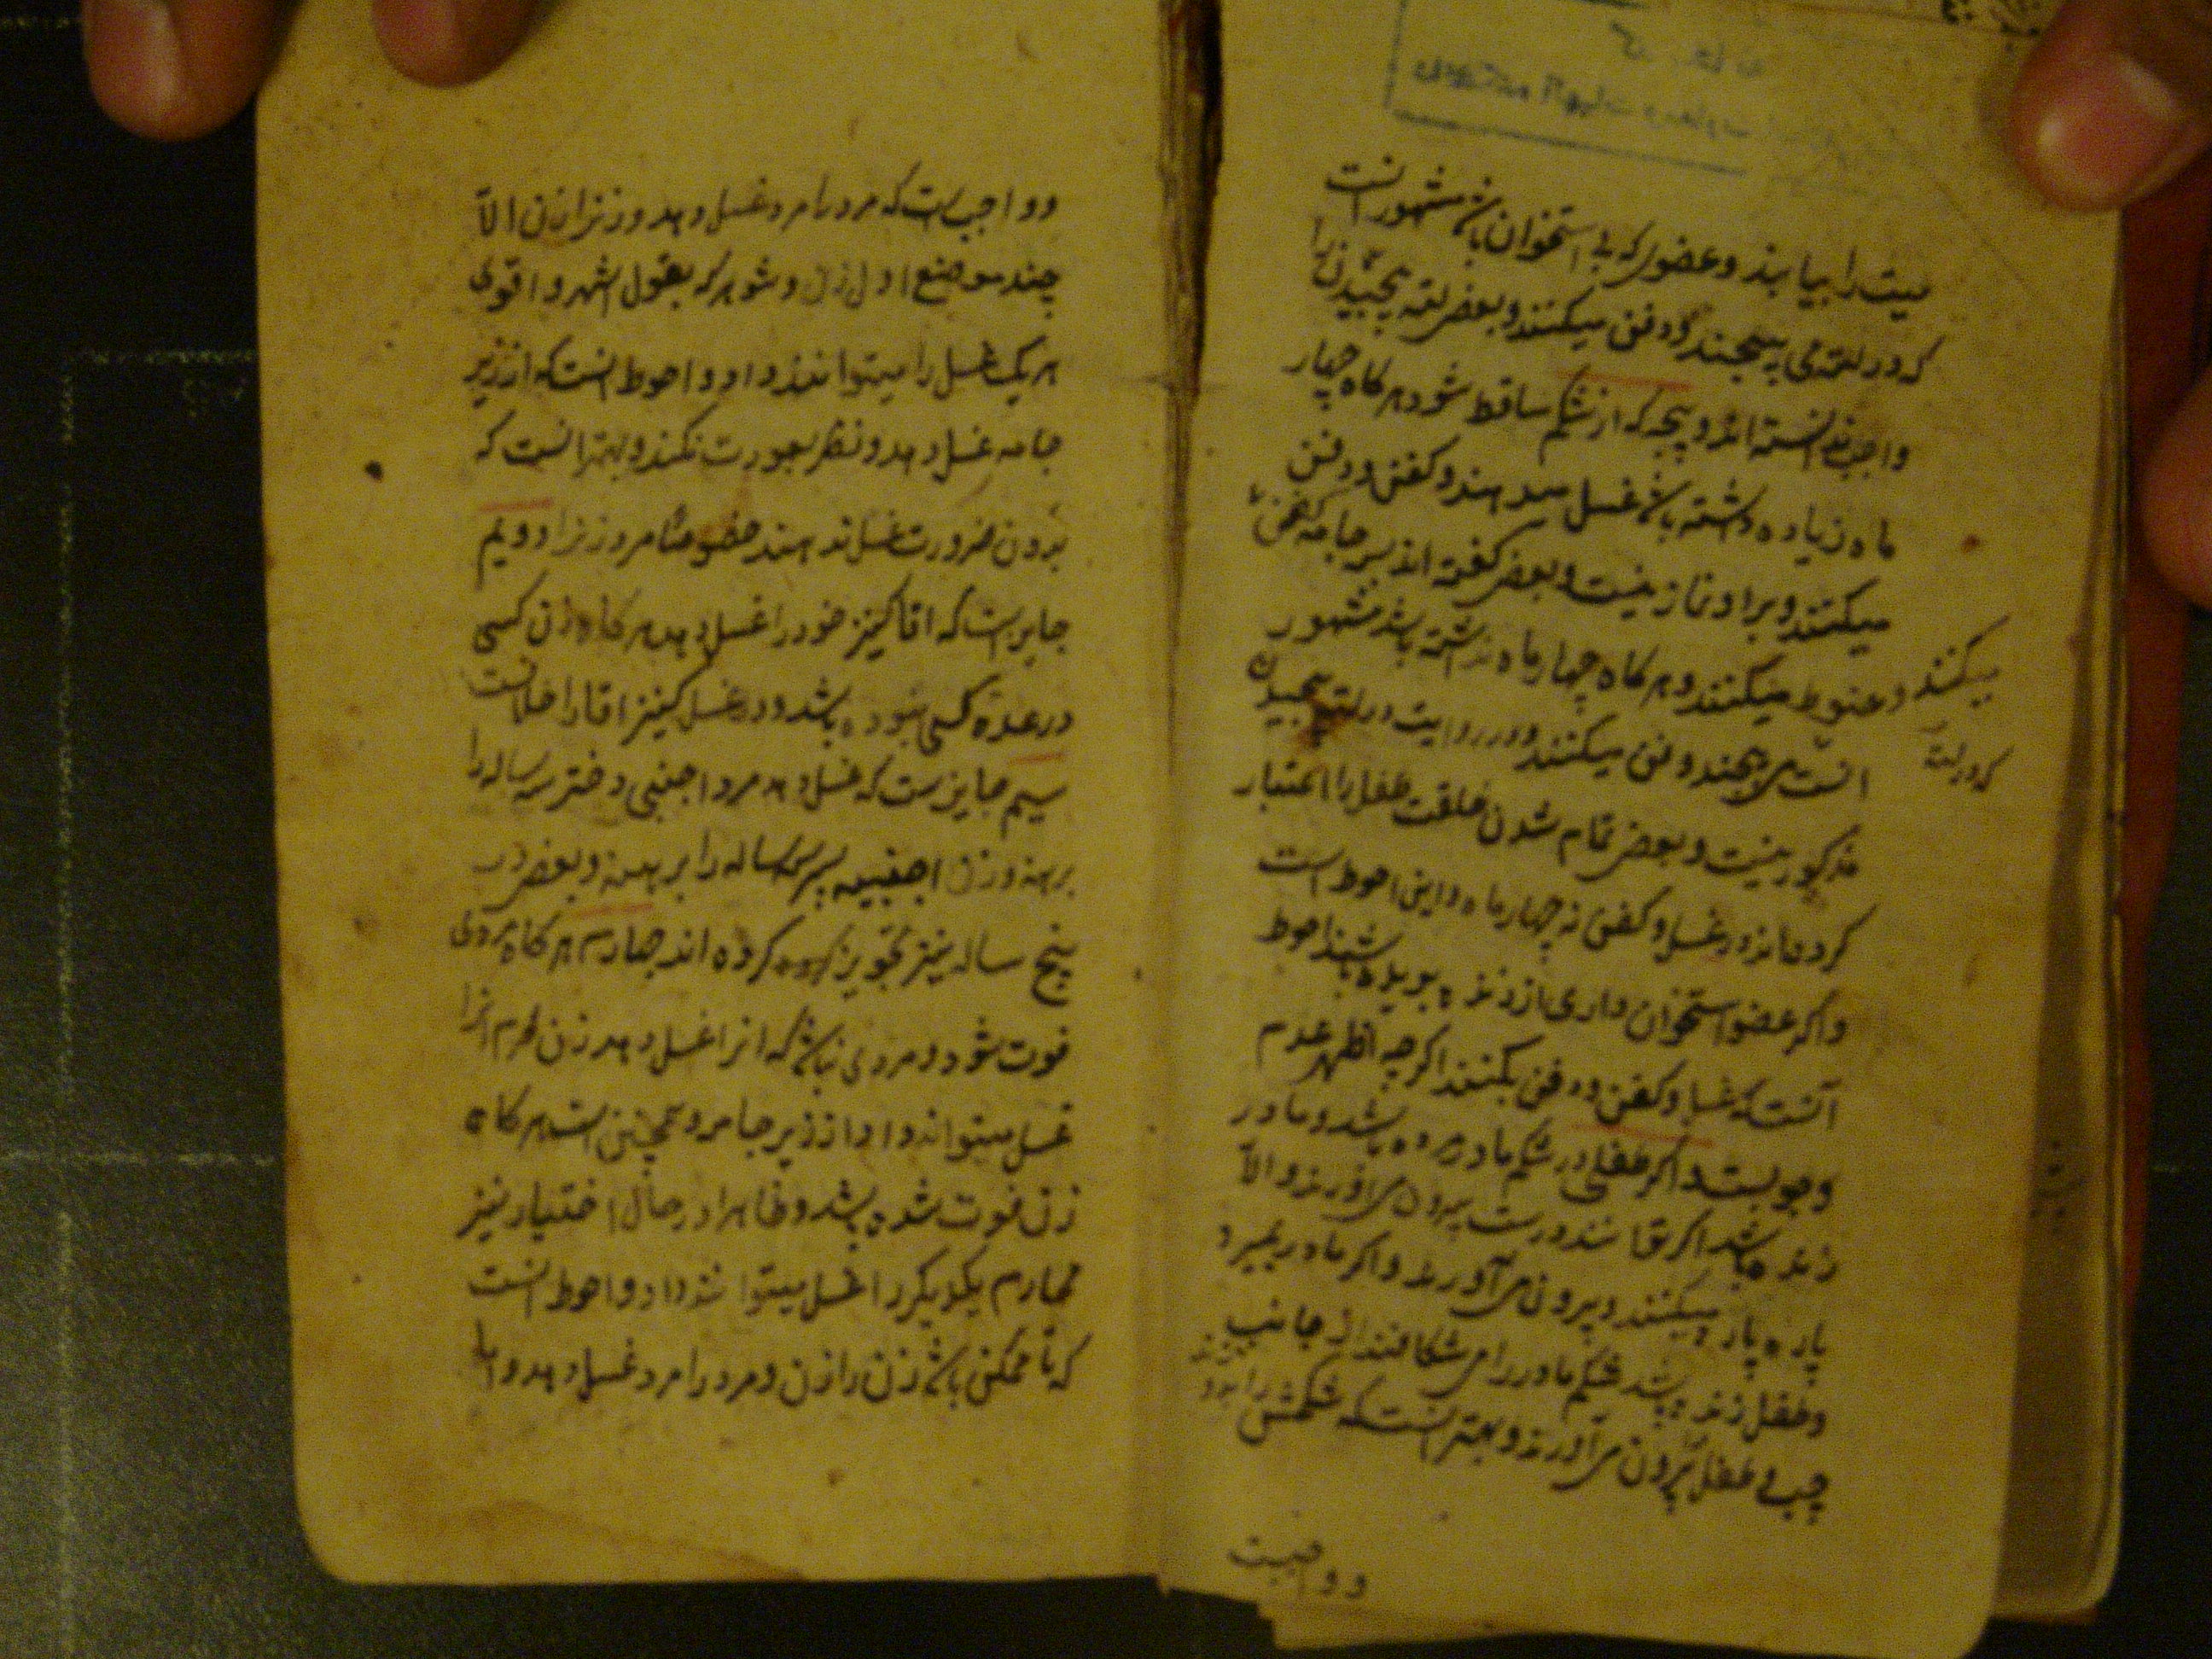 میت را بیابند و عضوی که بی استخوان باشد مشهور انست
که در لته می پیچند و دفن میکنند و بعضی لته پیچیدن را
واجب ندانسته اند و بچه که از شکم ساقط شود هرکاه چهار
ماه زیاده داشته باشد غسل میدهند و کفن و دفن
میکنند و برا و نماز نیست و بعضی کفته اند بسر جامه کفن
میکنند و حنوط میکنند و هرکاه چهار ماه نداشته باشد مشهور
میکنند
که در لته
انست می پیچند و دفن میکنند و در روایت در لته پیچیدن
مذکور نیست و بعضی تمام شدن خلقت طفل را اعتبار
کرده اند در غسل و کفن نه چهار ماه و این احوط است
و اکر عضو استخوان داری از زنده بریده باشند احوط
آنست که غسل و کفن و دفن بکنند اکرچه اظهر عدم
وجوبست و اکر طفلی در شکم مادر مرده باشد و مادر
زنده باشد اکر توانند درست بیرون می اورند و الا
پاره پاره میکنند و بیرون می آورند و اکر مادر بمیرد
و طفل زنده باشد شکم مادر را می شکافند از جانب
چپ و طفل بیرون می آورند و بهتر انست که شکمش را بدوزند
و واجبست
و واجب است که مرد را مرد غسل دهد و زنرا زن الا
چند موضع اول زن و شوهر که بقول اشهر و اقوی
هر یک غسل را میتوانند داد و احوط انست که از زیر
جامه غسل دهد و نظر بعورت نکند و بهتر انست که
بدون ضرورت غسل ندهند خصوصا مرد زنرا دویم
جایز است که اقا کنیز خود را غسل دهد هرکاه زن کسی
در عده کسی نبوده باشد و در غسل کنیز اقا را خلافست
سیم جایزست که غسل دهد مرد اجنبی دختر سه ساله را
برهنه و زن اجنبیه پسر سه ساله را برهنه و بعضی در
پنج ساله نیز تجویز کرده اند چهارم هرکاه مردی
فوت شود و مردی نباشد که انرا غسل دهد زن محرم انرا
غسل میتواند داد از زیر جامه و همچنین است هرکاه
زن فوت شده باشد و ظاهرا در حال اختیار نیز
محارم یکدیکر را غسل میتوانند داد و احوط انست
که تا ممکن باشد زن را زن و مرد را مرد غسل دهد و اما